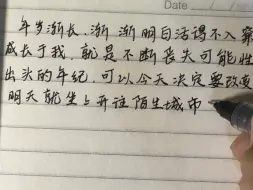 Date
年岁渐长,渐渐明白活得不入窠
成长于我,就是不断丧失可能性
出头的年纪,可以今天决定要改变
明天就坐上开往陌生城市